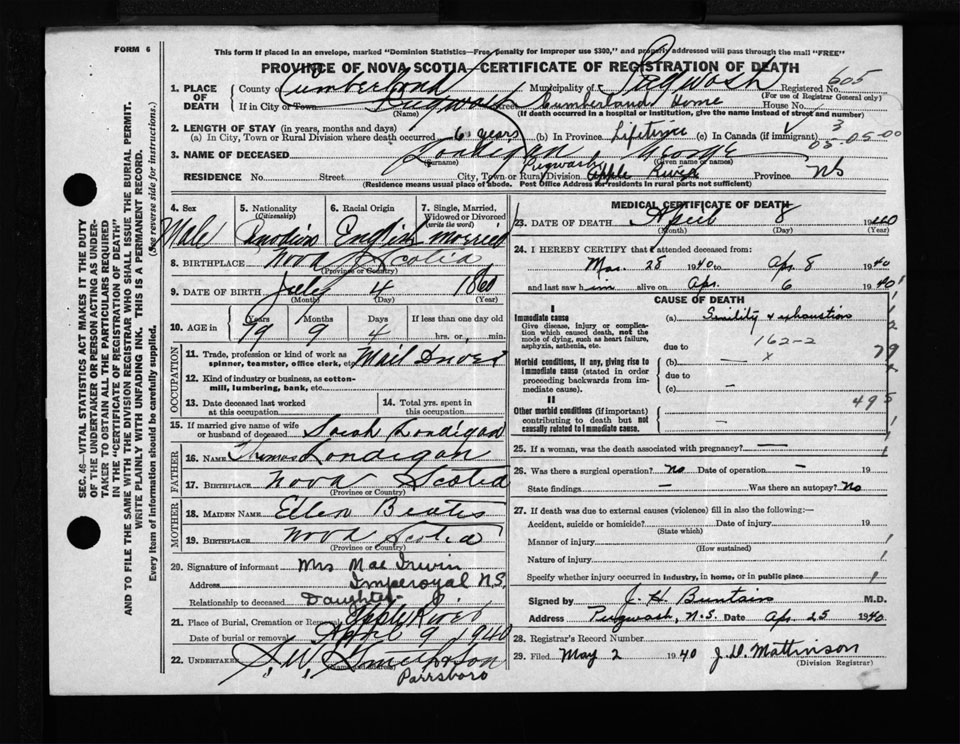 FORM 6
This form if placed in an envelope, marked "Dominion Statistics—Free, Penalty for improper use $300," and properly addressed will pass through the mail "FREE"
PROVINCE OF NOVA SCOTIA—CERTIFICATE OF REGISTRATION OF DEATH
605
1. PLACE OF DEATH
County of Cumberland Municipality of Pugwash Registered No.
(For use of Registrar General only)
If in City or Town Pugwash Street Cumberland Home House No.
(Name) (If death occurred in a hospital or institution, give the name instead of street and number)
2. LENGTH OF STAY (in years, months and days)
(a) In City, Town or Rural Division where death occurred 6 years (b) In Province Lifetime (c) In Canada (if immigrant)
05-05-00
3. NAME OF DECEASED Londigan George
(Surname) (Given name or names)
Pugwash
RESIDENCE No. Street City, Town or Rural Division Apple River Province NS
(Residence means usual place of abode. Post Office Address for residents in rural parts not sufficient)
4. Sex Male
5. Nationality (Citizenship) Canadian
6. Racial Origin English
7. Single, Married, Widowed or Divorced (write the word) married
8. BIRTHPLACE Nova Scotia
(Province or Country)
9. DATE OF BIRTH July 4 1860
(Month) (Day) (Year)
10. AGE in Years Months Days If less than one day old
79 9 4 hrs. or min.
OCCUPATION
11. Trade, profession or kind of work as spinner, teamster, office clerk, etc. Mail Driver
12. Kind of industry or business, as cotton-mill, lumbering, bank, etc.
13. Date deceased last worked at this occupation
14. Total yrs. spent in this occupation
15. If married give name of wife or husband of deceased Sarah Londigan
FATHER
16. NAME Thomas Londigan
17. BIRTHPLACE Nova Scotia
(Province or Country)
MOTHER
18. MAIDEN NAME Ellen
19. BIRTHPLACE Nova Scotia
(Province or Country)
20. Signature of informant Mrs Mae Irwin
Address Imperoyal N.S.
Relationship to deceased Daughter
21. Place of Burial, Cremation or Removal Apple River
Date of burial or removal April 9 1940
22. UNDERTAKER
Parrsboro
MEDICAL CERTIFICATE OF DEATH
23. DATE OF DEATH April 8 1940
(Month) (Day) (Year)
24. I HEREBY CERTIFY that I attended deceased from:
Mar. 28 1940 to Apr. 8 1940
and last saw him alive on Apr. 6 1940
CAUSE OF DEATH
I
Immediate cause
Give disease, injury or complication which caused death, not the mode of dying, such as heart failure, asphyxia, asthenia, etc.
(a) Senility & exhaustion
due to 162-2
Morbid conditions, if any, giving rise to immediate cause (stated in order proceeding backwards from immediate cause).
(b) — x
due to
(c) —
79
II
495
Other morbid conditions (important) contributing to death but not causally related to immediate cause.
25. If a woman, was the death associated with pregnancy? —
26. Was there a surgical operation? No Date of operation — 19
State findings — Was there an autopsy? No
27. If death was due to external causes (violence) fill in also the following:—
Accident, suicide or homicide? Date of injury 19
(State which)
Manner of injury
(How sustained)
Nature of injury
Specify whether injury occurred in industry, in home, or in public place
Signed by J. H. Buntain M.D.
Address Pugwash, N.S. Date Apr. 25 1940
28. Registrar's Record Number
29. Filed May 2 1940 J. D. Mattinson
(Division Registrar)
SEC. 46—VITAL STATISTICS ACT MAKES IT THE DUTY
OF THE UNDERTAKER OR PERSON ACTING AS UNDER-
TAKER TO OBTAIN ALL THE PARTICULARS REQUIRED
IN THE "CERTIFICATE OF REGISTRATION OF DEATH"
AND TO FILE THE SAME WITH THE DIVISION REGISTRAR WHO SHALL ISSUE THE BURIAL PERMIT.
WRITE PLAINLY WITH UNFADING INK. THIS IS A PERMANENT RECORD.
Every item of information should be carefully supplied. (See reverse side for instructions.)